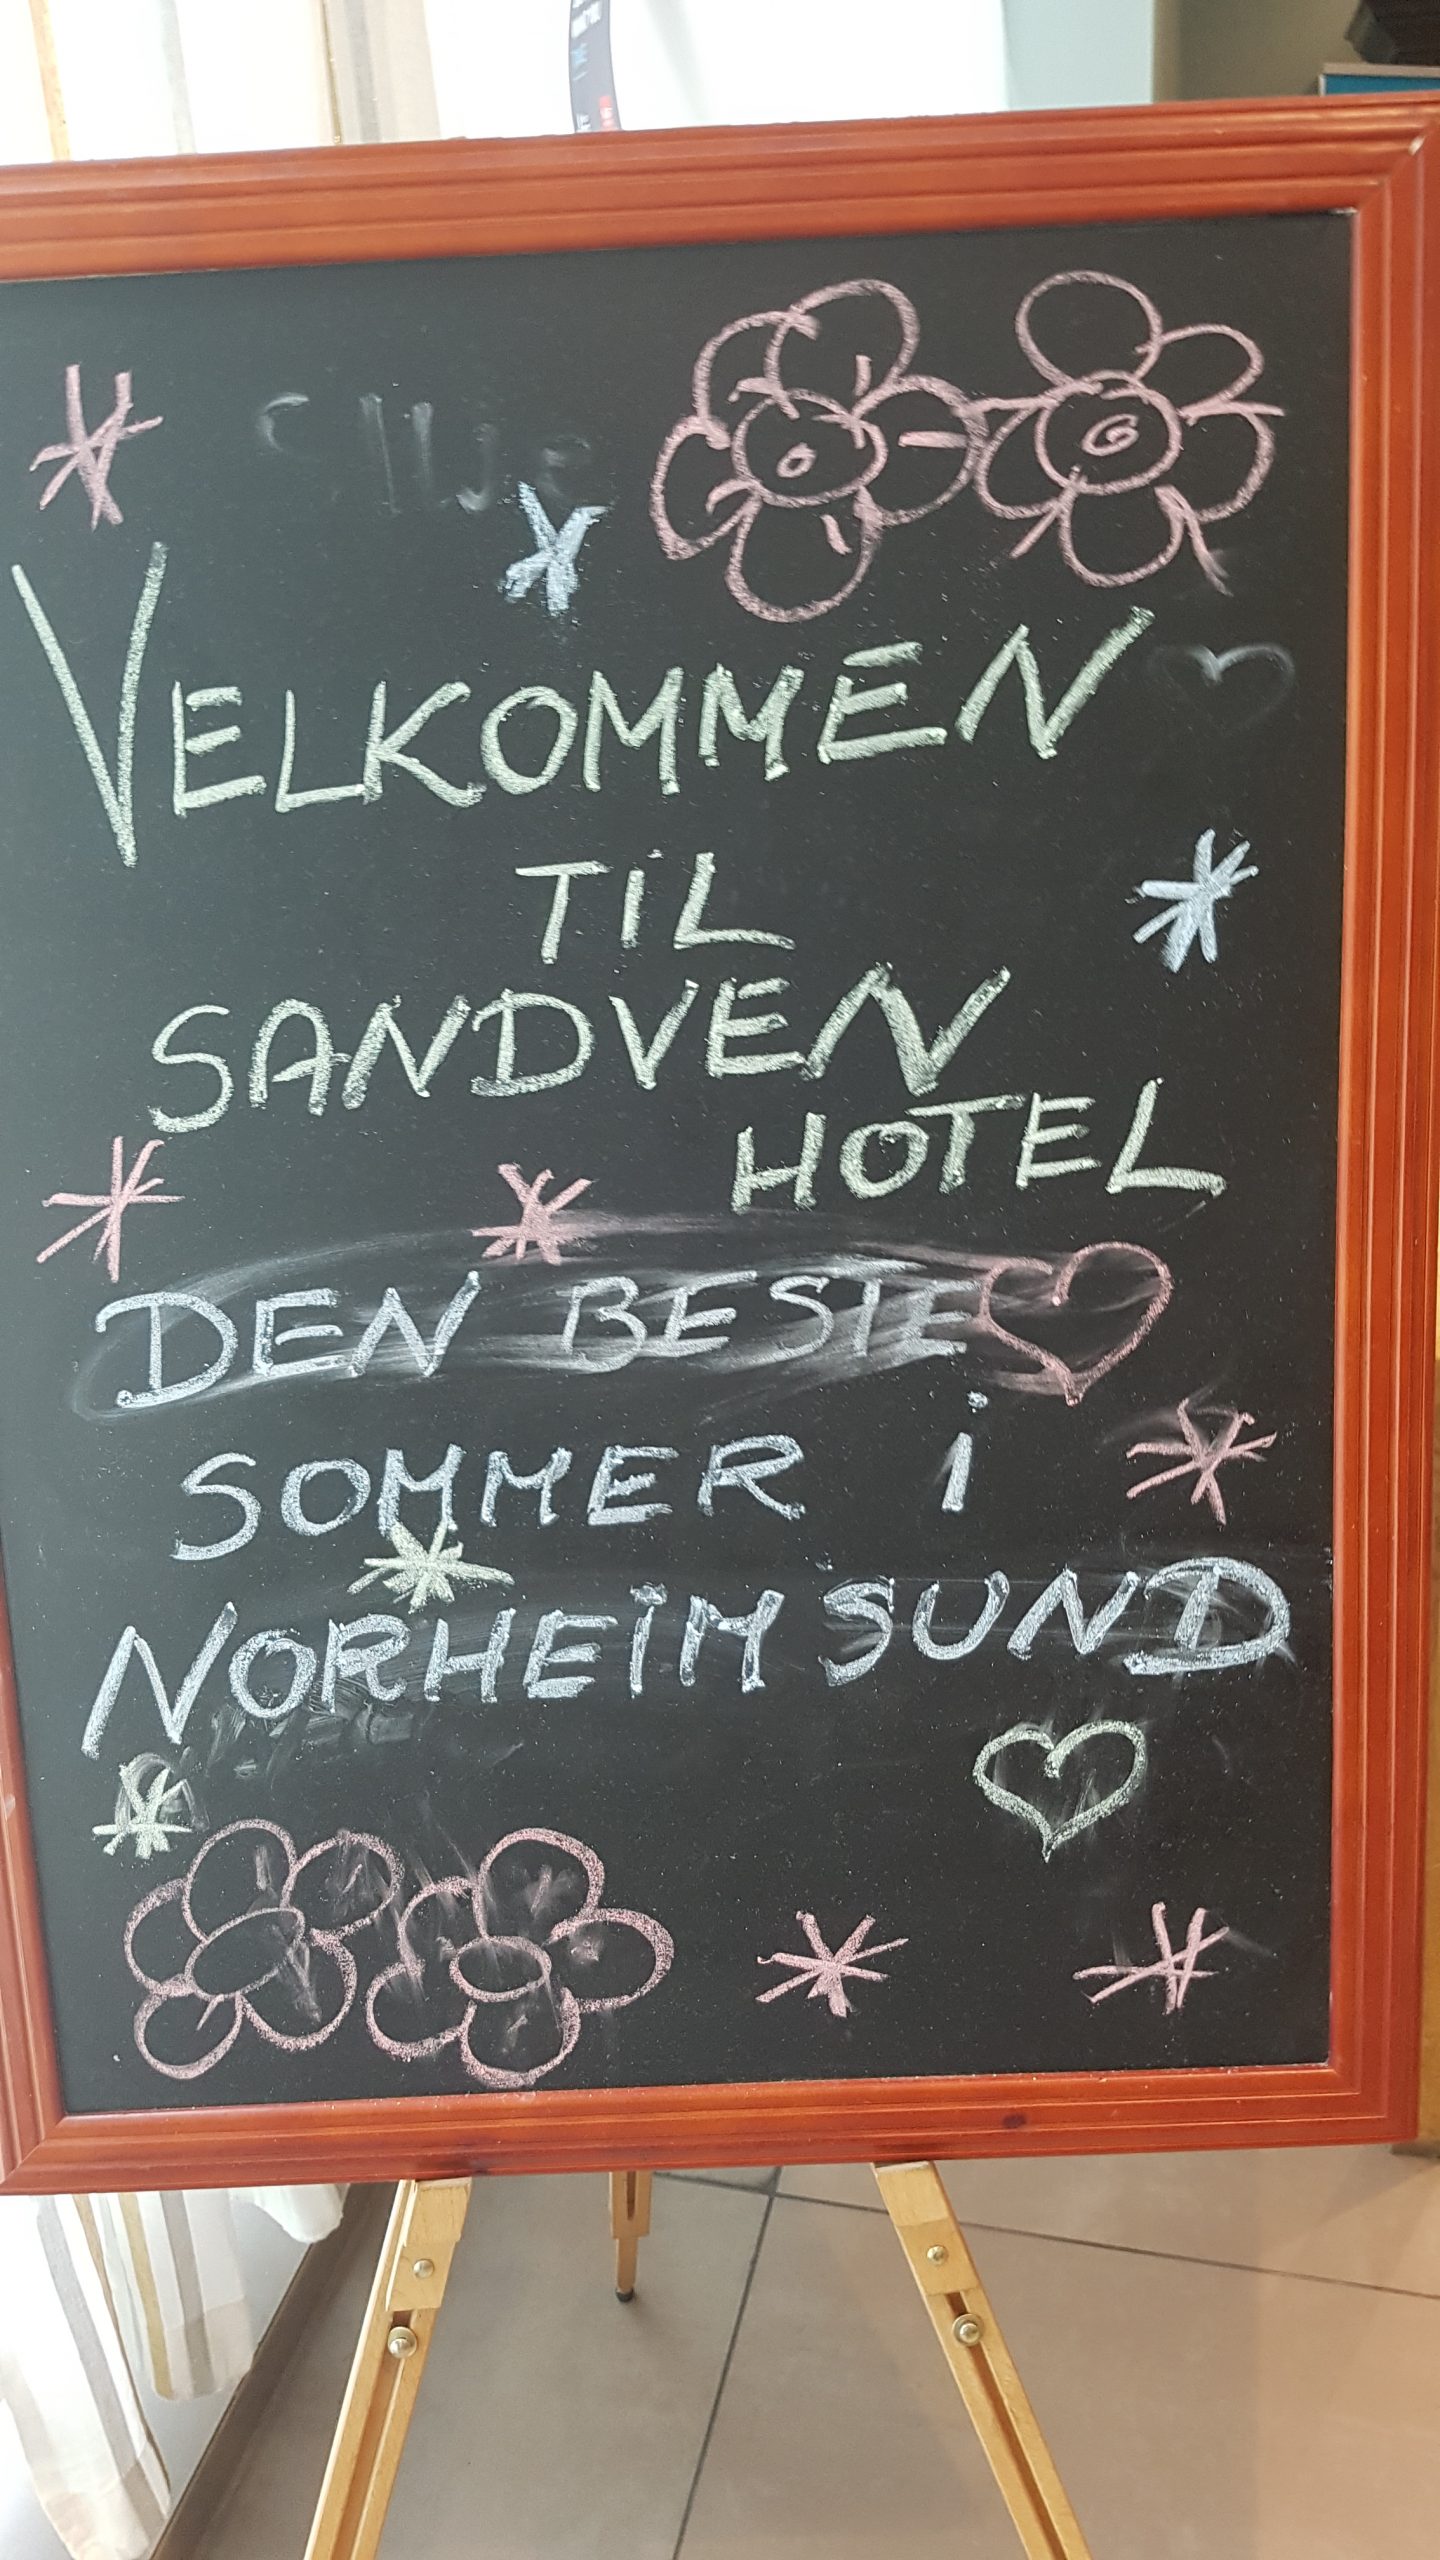 VELKOMMEN
TIL
SANDVEN
HOTEL
DEN BESTE
SOMMER I
NORHEIMSUND